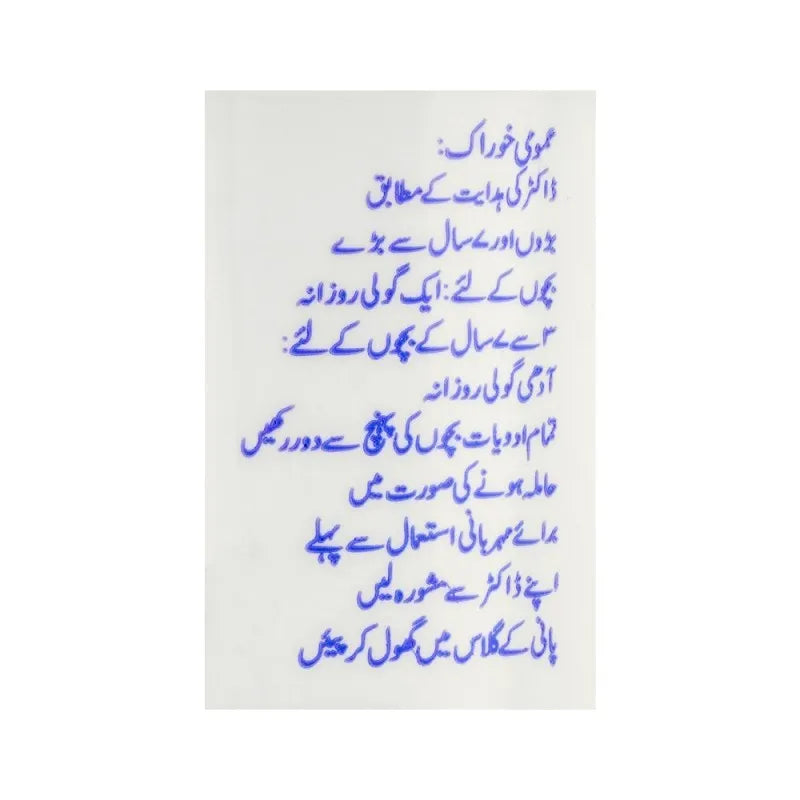 عمومی خوراک:
ڈاکٹر کی ہدایت کے مطابق
بڑوں اور ۷ سال سے بڑے
بچوں کے لئے: ایک گولی روزانہ
۳ سے ۷ سال کے بچوں کے لئے:
آدھی گولی روزانہ
تمام ادویات بچوں کی پہنچ سے دور رکھیں
حاملہ ہونے کی صورت میں
برائے مہربانی استعمال سے پہلے
اپنے ڈاکٹر سے مشورہ لیں
پانی کے گلاس میں گھول کر پیئیں